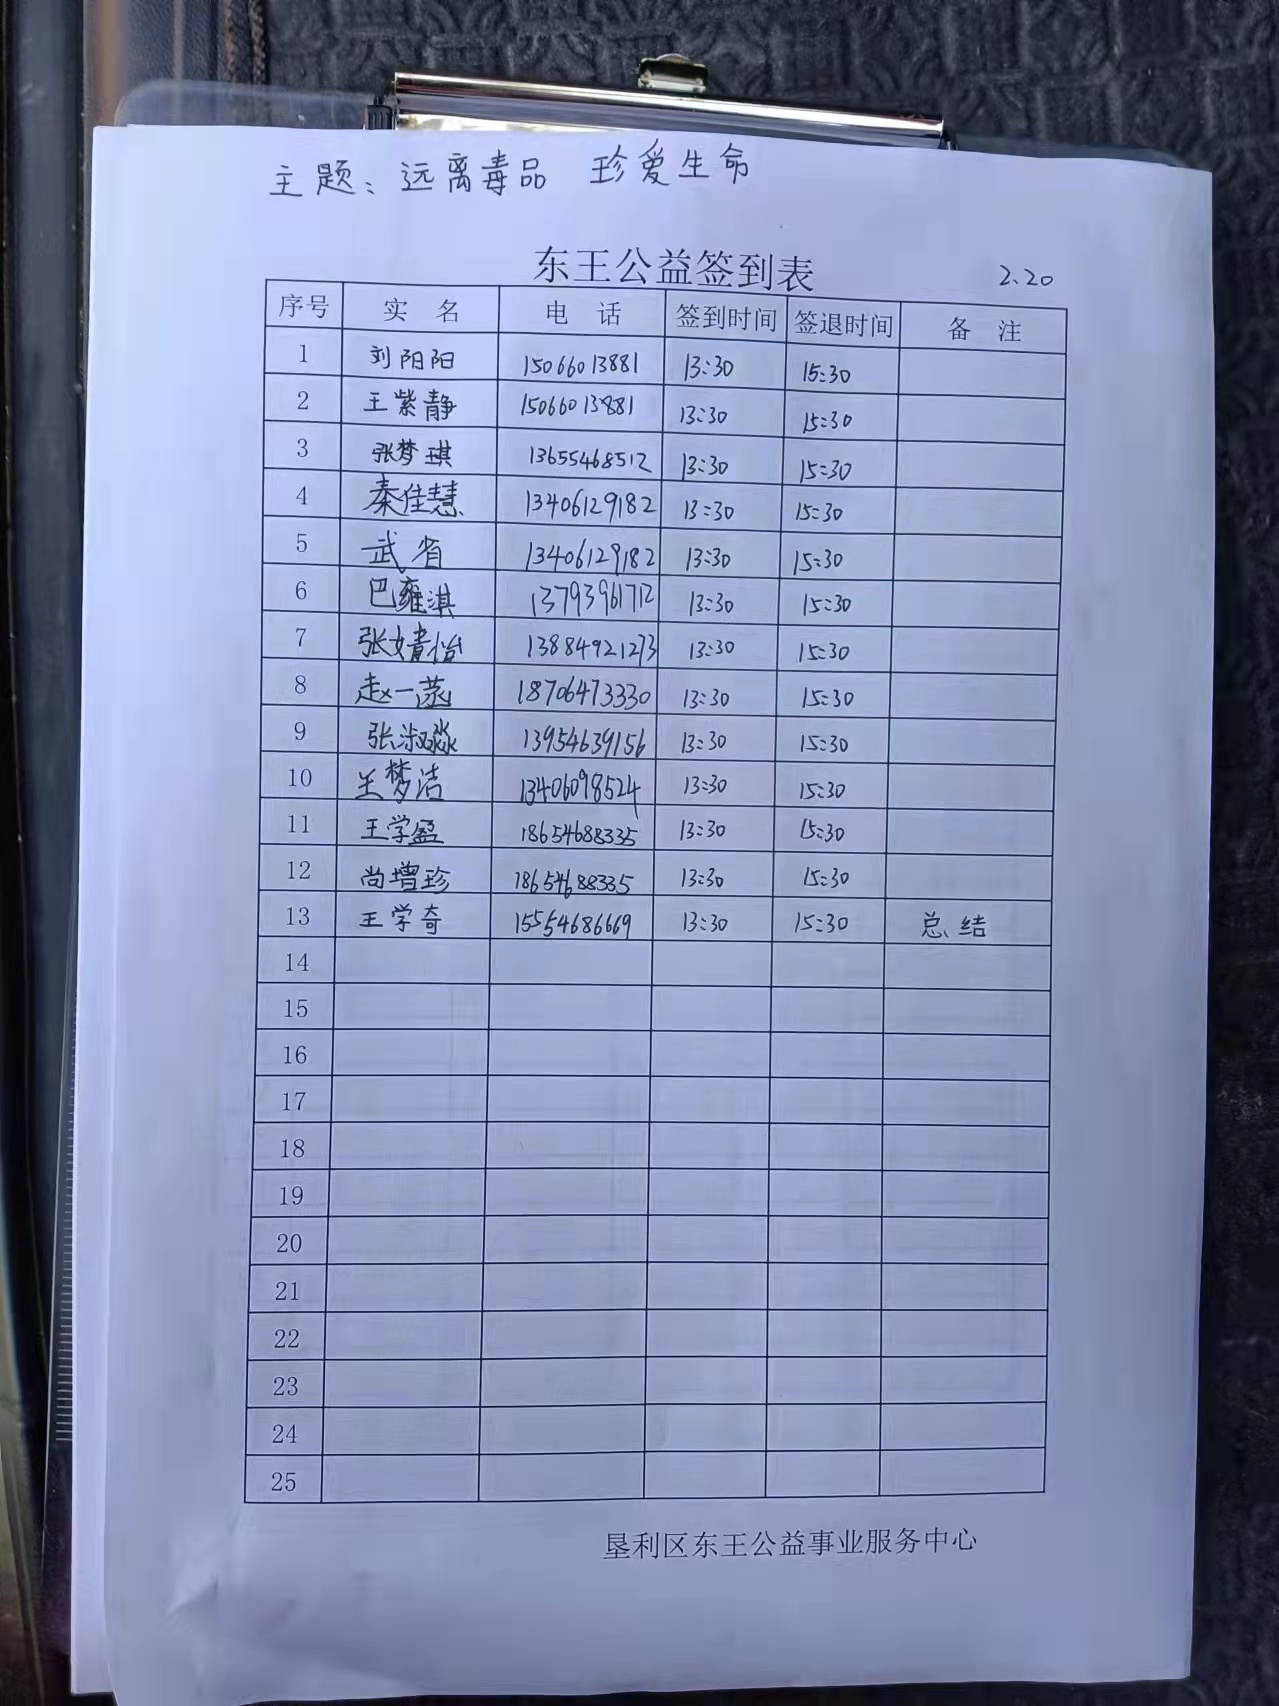 主题：远离毒品 珍爱生命
东王公益签到表 2.20
序号 实名 电话 签到时间 签退时间 备注
1 刘阳阳 15066013881 13:30 15:30
2 王紫静 15066013881 13:30 15:30
3 张梦琪 13655468512 13:30 15:30
4 秦佳慧 13406129182 13:30 15:30
5 武省 13406129182 13:30 15:30
6 巴雍淇 13793961712 13:30 15:30
7 张婧怡 13884921273 13:30 15:30
8 赵一菡 18706473330 13:30 15:30
9 张淑淼 13954639156 13:30 15:30
10 王梦洁 13406098524 13:30 15:30
11 王学盈 18654688335 13:30 15:30
12 尚增珍 18654688335 13:30 15:30
13 王学奇 15554686669 13:30 15:30 总结
14
15
16
17
18
19
20
21
22
23
24
25
垦利区东王公益事业服务中心